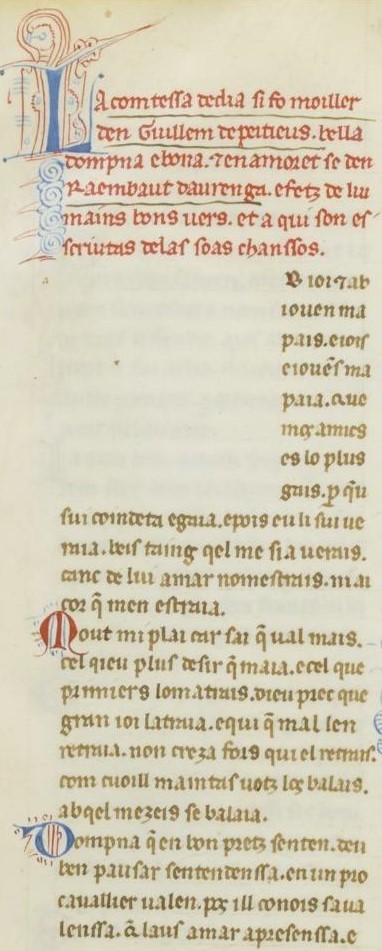 La comtessa dedia si fo moiller
den Guillem de peitieus. bella
dompna e bona. ⁊ enamoret se den
Raembaut daurenga. e fetz de lui
mains bons vers. et a qui son es-
scriutas de las soas chanssos.
B ioi ⁊ ab
iouen ma
pais. e iois
e iouēs ma
paia. que
mos amics
es lo plus
gais. ꝑ qu
sui coindeta e gaia. e pois eu li sui ve
raia. beis taing qel me sia uerais.
canc de lui amar nomestrais. ni ai
cor q̄ men estraia.
Mout mi plai car sai q̄ ual mais.
cel qieu plus desir q̄ maia. e cel que
primiers lo matrais. dieu prec que
gran ioi latraia. e qui q̄ mal len
retraia. non creza fors qui el retrais.
com cuoill maintas uotz los balais.
ab qel mezeis se balaia.
Dompna q̄ en bon pretz senten. deu
ben pausar sentendenssa. en un pro
cauallier ualen. pos ill conois sa ua
lenssa. q̄ laus amar a presenssa. e